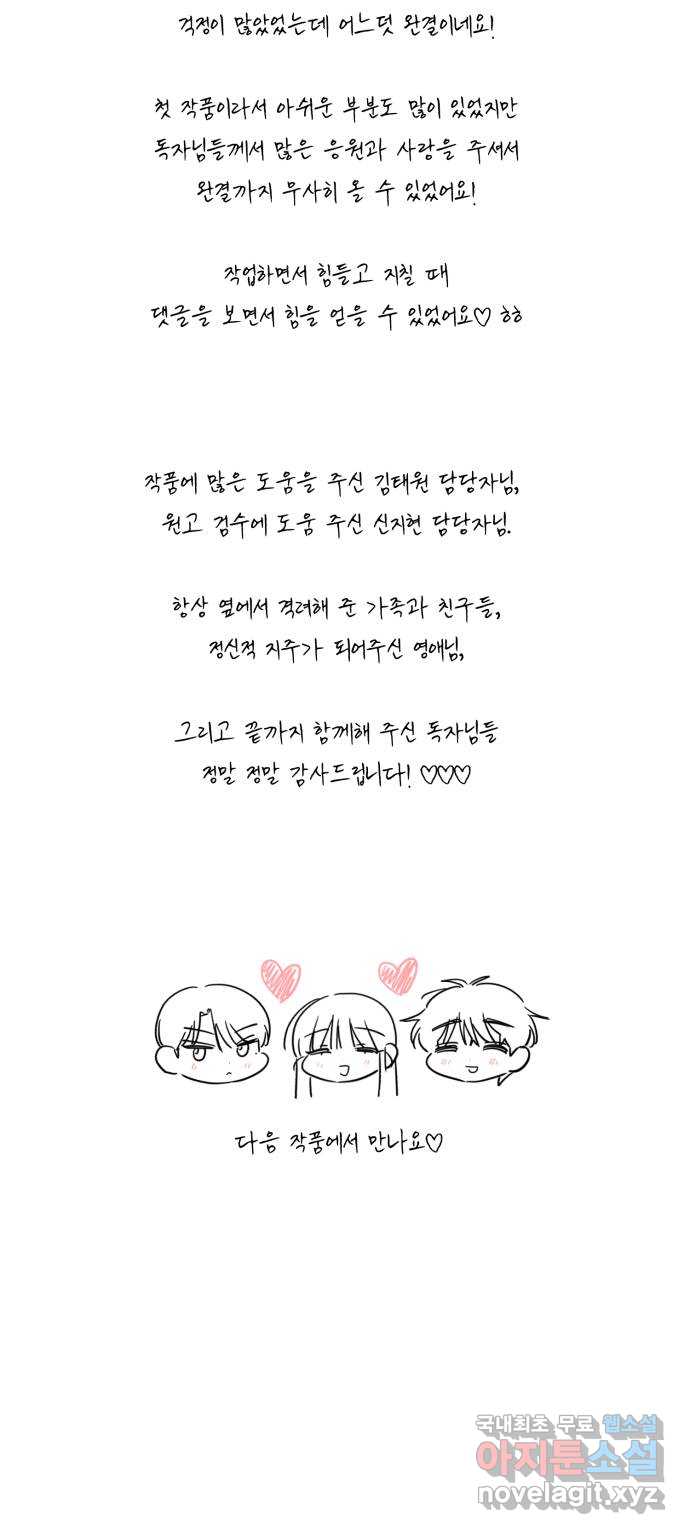 걱정이 많았었는데 어느덧 완결이네요!
첫 작품이라서 아쉬운 부분도 많이 있었지만
독자님들께서 많은 응원과 사랑을 주셔서
완결까지 무사히 올 수 있었어요!
작업하면서 힘들고 지칠 때
댓글을 보면서 힘을 얻을 수 있었어요♡ ㅎㅎ
작품에 많은 도움을 주신 김태원 담당자님,
원고 검수에 도움 주신 신지현 담당자님.
항상 옆에서 격려해 준 가족과 친구들,
정신적 지주가 되어주신 영애님,
그리고 끝까지 함께해 주신 독자님들
정말 정말 감사드립니다! ♡♡♡
다음 작품에서 만나요♡
국내최초 무료 웹소설
아지툰소설
novelagit.xyz